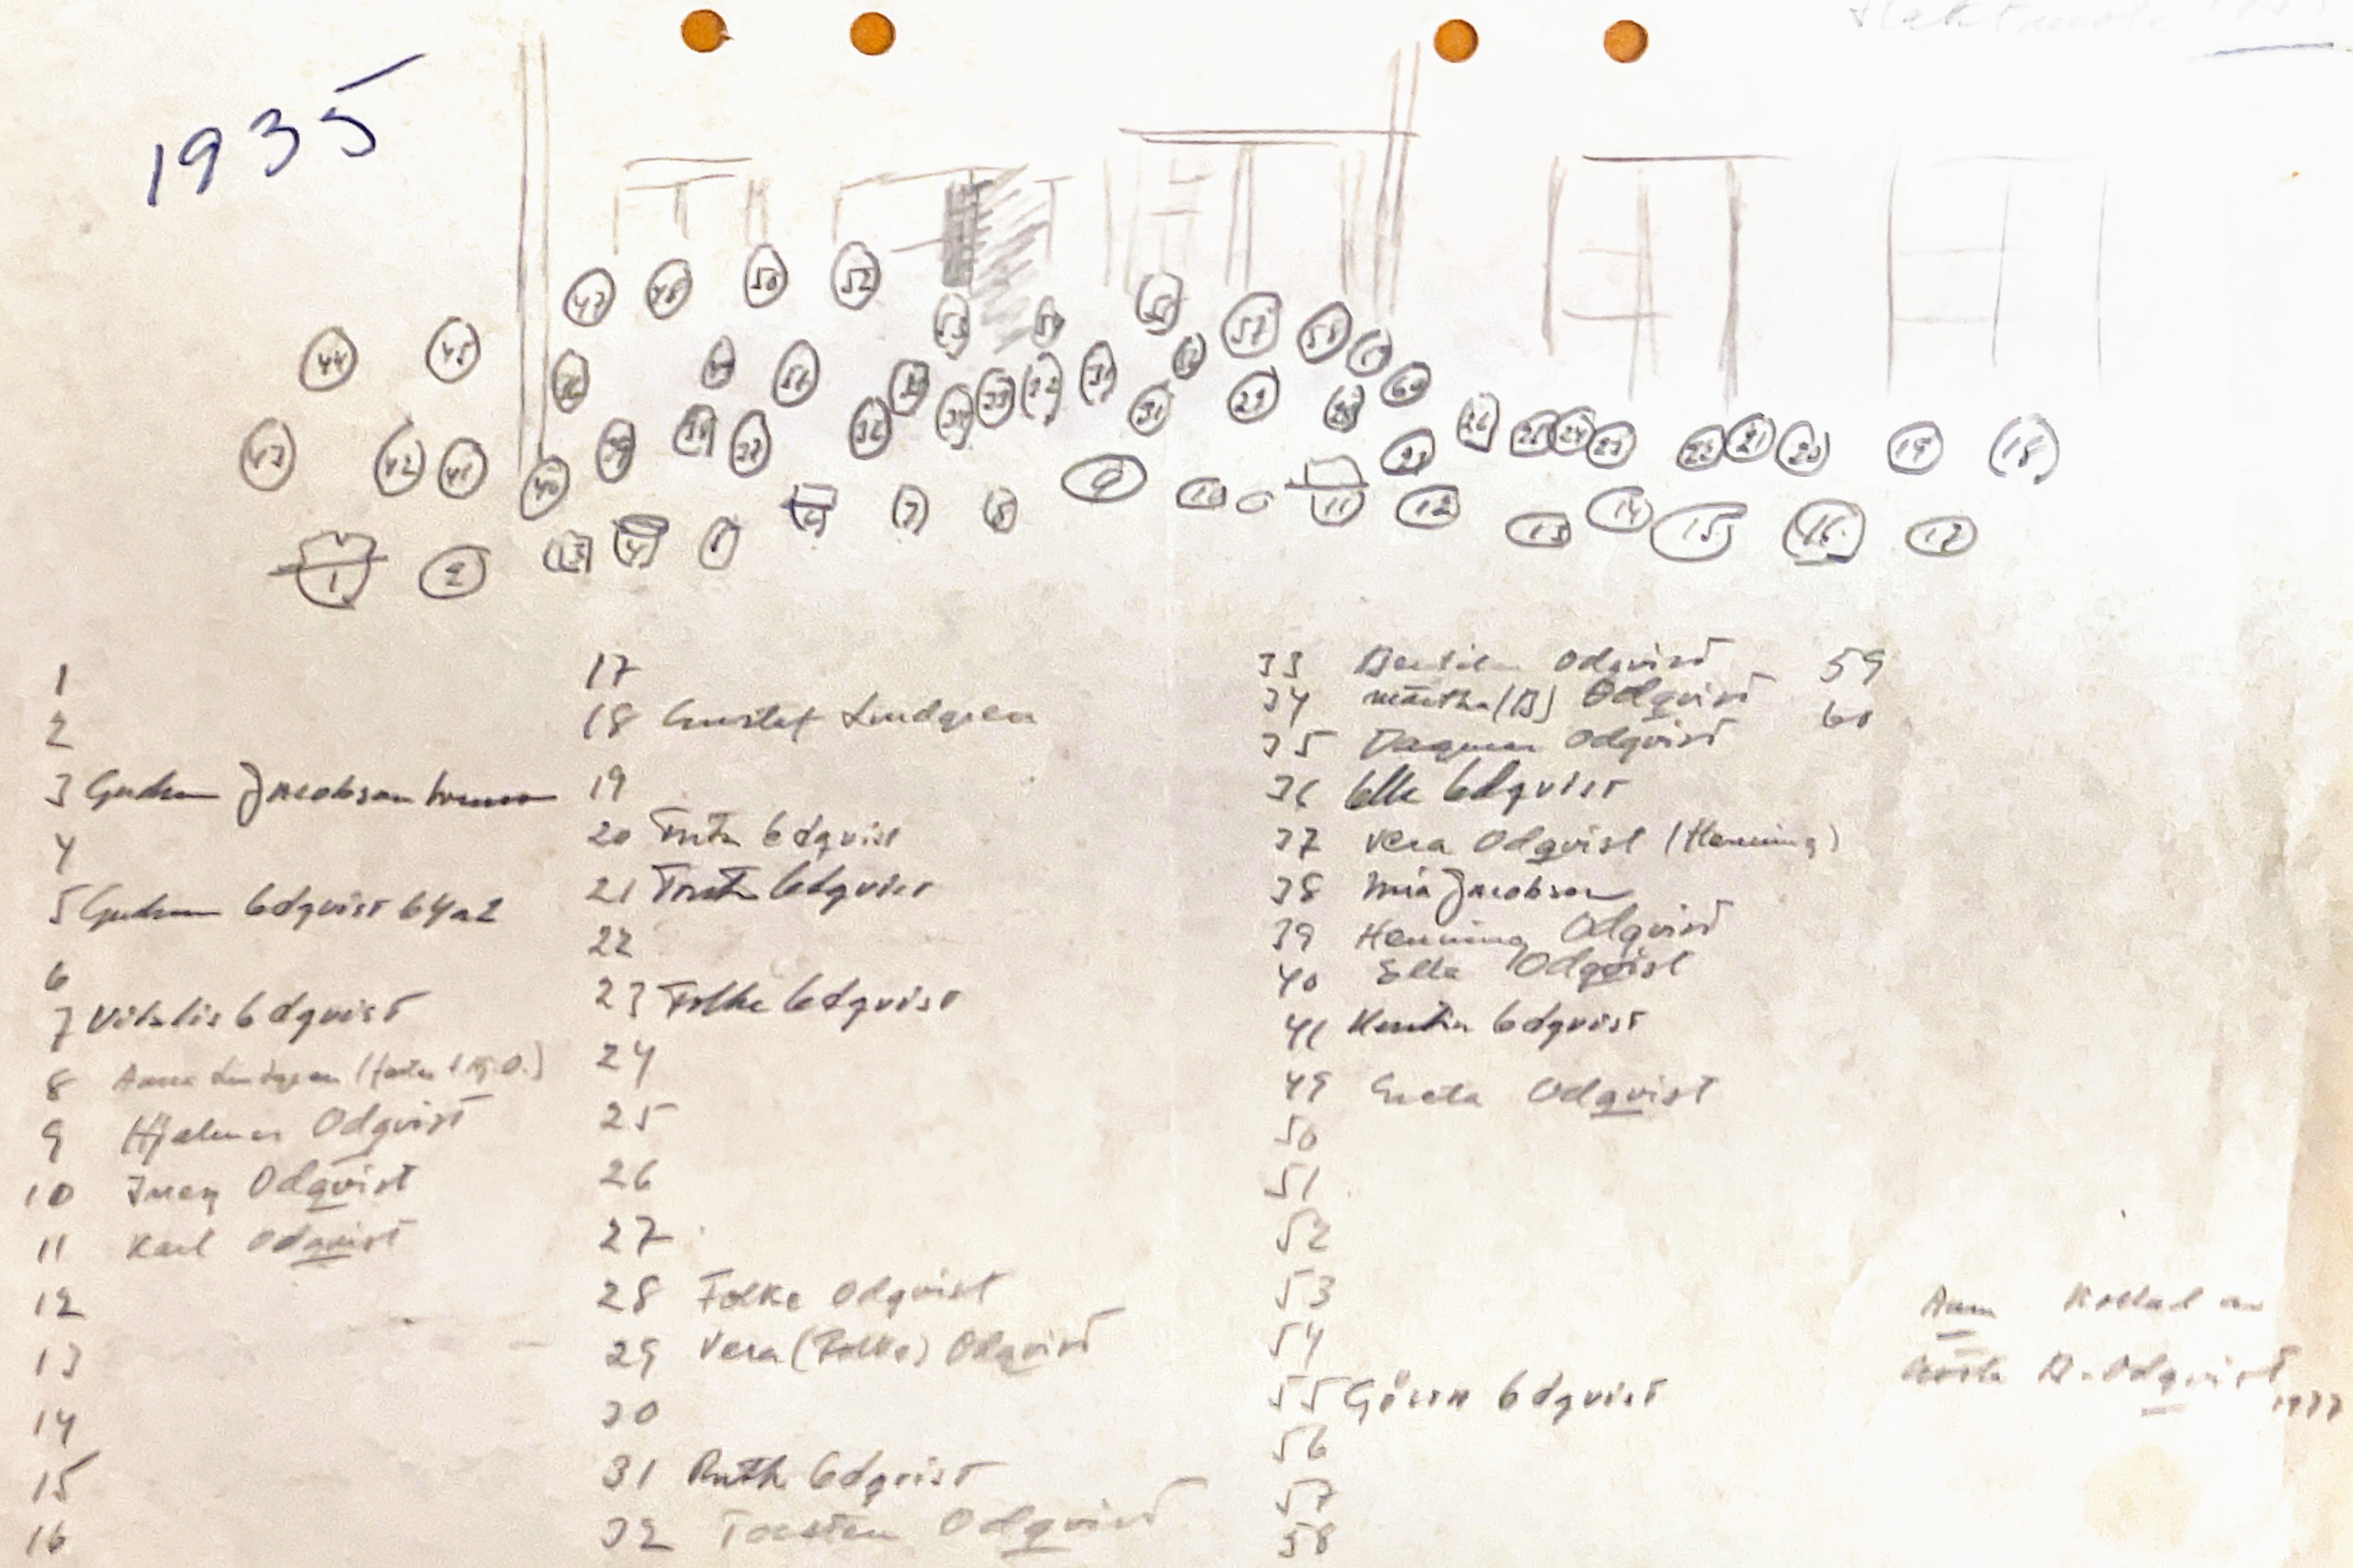 1935
44
45
47
48
50
52
53
57
58
60
29
28
31
43
42
41
40
39
38
37
36
35
33
26
25
24
23
22
21
20
19
18
1
2
3
4
5
6
7
8
9
10
11
12
13
14
15
16
17
1
2
3 Gudrun Jacobson
4
5 Gudrun Odqvist
6
7 Vitalis Odqvist
8 Anna Lindgren
9 Hjalmar Odqvist
10 Odqvist
11 Karl Odqvist
12
13
14
15
16
17
18 Gustaf Lindgren
19
20 Odqvist
21 Odqvist
22
23 Folke Odqvist
24
25
26
27
28 Folke Odqvist
29 Vera (Folke) Odqvist
30
31 Ruth Odqvist
32 Torsten Odqvist
33 Odqvist
34 Märtha (B) Odqvist
35 Dagmar Odqvist
36 Odqvist
37 Vera Odqvist (Henning)
38 Mia Jacobson
39 Henning Odqvist
40 Ella Odqvist
41 Kerstin Odqvist
49 Greta Odqvist
50
51
52
53
54
55 Odqvist
56
57
58
59
60
Kollad av
Gösta B. Odqvist